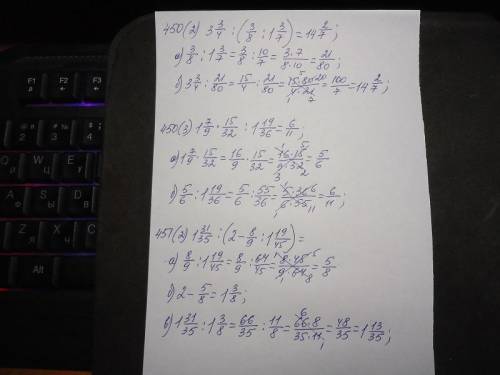 450(2) 3 3/4 : (3/8 : 1 3/7) = 14 2/7;
а) 3/8 : 1 3/7 = 3/8 : 10/7 = 3·7/8·10 = 21/80;
б) 3 3/4 : 21/80 = 15/4 : 21/80 = 15·80/4·21 = 100/7 = 14 2/7;
450(3) 1 7/9 · 15/32 : 1 19/36 = 6/11;
а) 1 7/9 · 15/32 = 16/9 · 15/32 = 16·15/9·32 = 5/6
б) 5/6 : 1 19/36 = 5/6 : 55/36 = 5·36/6·55 = 6/11;
451(2) 1 31/35 : (2 - 8/9 : 1 19/45) =
а) 8/9 : 1 19/45 = 8/9 : 64/45 = 8·45/9·64 = 5/8
б) 2 - 5/8 = 1 3/8;
в) 1 31/35 : 1 3/8 = 66/35 : 11/8 = 66·8/35·11 = 48/35 = 1 13/35;
F1
F2
F3
@ 2
№ # 3
$ 4
W
E
Ф
S
Alt